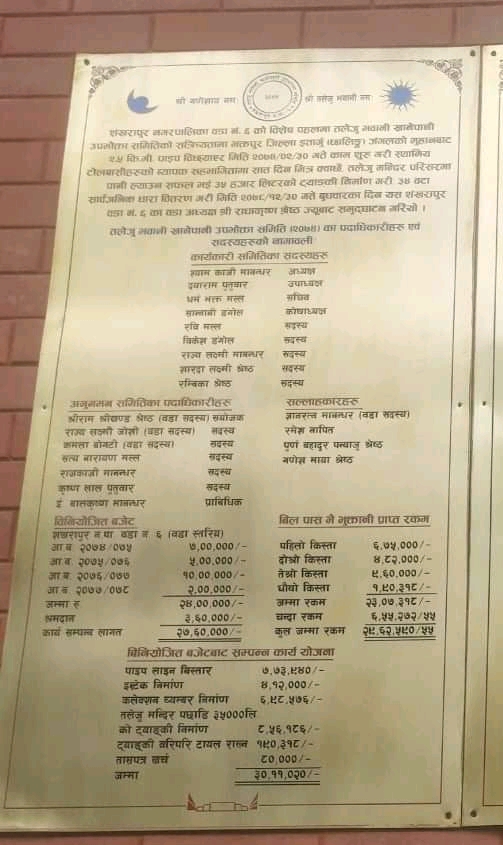 श्री गणेशाय नमः
श्री तलेजु भवानी नमः
शंखरापुर नगरपालिका वडा नं. ६ को विशेष पहलमा तलेजु भवानी खानेपानी
उपभोक्ता समितिको सक्रियतामा भक्तपुर जिल्ला जंगलको मुहानबाट
२.५ कि.मी. पाइप विछ्याइ मिति २०७४/०२/३० गते काम शुरु गरी स्थानिय
टोलबासीहरुको व्यापक सहभागितामा सात दिन भित्र तलेजु मन्दिर परिसरमा
पानी ल्याउन सफल भई ३५ हजार लिटरको ट्याङकी निर्माण गरी ३४ वटा
सार्वजनिक धारा वितरण गरी मिति २०७८/१२/३० गते बुधवारका दिन यस शंखरापुर
वडा नं. ६ का वडा अध्यक्ष श्री राधाकृष्ण श्रेष्ठ ज्यूबाट समुद्घाटन गरियो ।
तलेजु भवानी खानेपानी उपभोक्ता समिति (२०७४) का पदाधिकारीहरु एवं
सदस्यहरुको नामावली
कार्यकारी समितिका सदस्यहरु
श्याम काजी मानन्धर अध्यक्ष
दयाराम पुतुवार उपाध्यक्ष
धर्म भक्त मल्ल सचिव
सानबाबी डंगोल कोषाध्यक्ष
रवि मल्ल सदस्य
विकेश डंगोल सदस्य
राज्य लक्ष्मी मानन्धर सदस्य
शारदा लक्ष्मी श्रेष्ठ सदस्य
रम्बिका श्रेष्ठ सदस्य
अनुगमन समितिका पदाधिकारीहरु
श्रीराम श्रीखण्ड श्रेष्ठ (वडा सदस्य) संयोजक
राज्य लक्ष्मी जोशी (वडा सदस्य) सदस्य
कमला बोगटी (वडा सदस्य) सदस्य
सत्य नारायण मल्ल सदस्य
राजकाजी मानन्धर सदस्य
कृष्ण लाल पुतुवार सदस्य
इं बालकृष्ण मानन्धर प्राबिधिक
सल्लाहकारहरु
ज्ञानरत्न मानन्धर (वडा सदस्य)
रमेश नापित
पुर्ण बहादुर श्रेष्ठ
गणेश माया श्रेष्ठ
विनियोजित बजेट
शंखरापुर न पा वडा नं ६ (वडा स्तरिय)
आ.ब. २०७४/०७५ ७,००,०००/-
आ.ब. २०७५/०७६ ५,००,०००/-
आ.ब. २०७६/०७७ १०,००,०००/-
आ.ब. २०७७/०७८ २,००,०००/-
जम्मा रु २४,००,०००/-
श्रमदान ३,६०,०००/-
कार्य सम्पन्न लागत २७,६०,०००/-
बिल पास भै भुक्तानी प्राप्त रकम
पहिलो किस्ता ६,७५,०००/-
दोश्रो किस्ता ४,८२,०००/-
तेश्रो किस्ता ९,६०,०००/-
चौथो किस्ता १,९०,३१८/-
जम्मा रकम २३,०७,३१८/-
चन्दा रकम ६,५५,२७२/५५
कुल जम्मा रकम २९,६२,५९०/५५
बिनियोजित बजेटबाट सम्पन्न कार्य योजना
पाइप लाइन बिस्तार ७,७३,९४०/-
इन्टेक निर्माण ४,१२,०००/-
कलेक्शन च्यम्बर निर्माण ६,९८,५७६/-
तलेजु मन्दिर पछाडि ३५०००लि
को ट्याङकी निर्माण ८,५६,१८६/-
ट्याङकी वरिपरि टायल राख्न १९०,३१८/-
ताम्रपत्र खर्च ८०,०००/-
जम्मा ३०,११,०२०/-